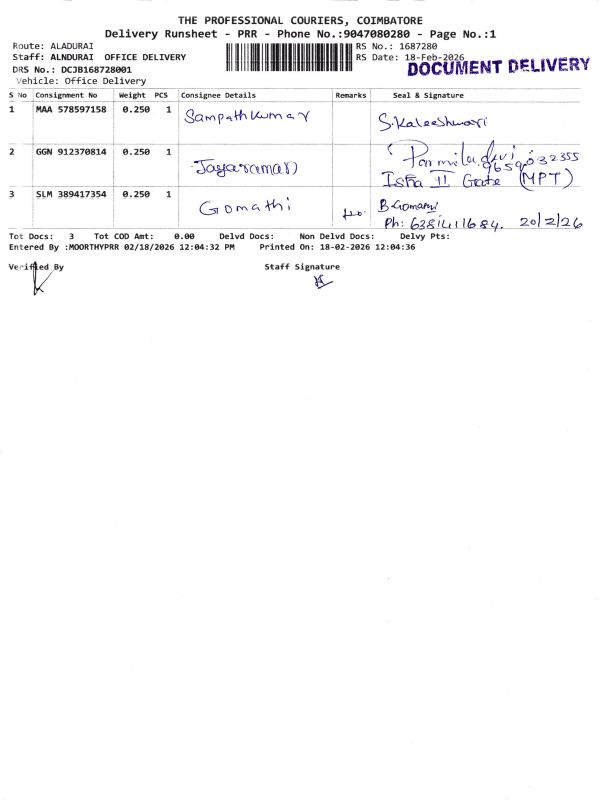 THE PROFESSIONAL COURIERS, COIMBATORE
Delivery Runsheet - PRR - Phone No.:9047080280 - Page No.:1
Route: ALADURAI
RS No.: 1687280
Staff: ALNDURAI OFFICE DELIVERY
RS Date: 18-Feb-2026
DRS No.: DCJB168728001
DOCUMENT DELIVERY
Vehicle: Office Delivery
S No Consignment No Weight PCS Consignee Details Remarks Seal & Signature
1 MAA 578597158 0.250 1 Sampathkumar S.Kaleeshwari
2 GGN 912370814 0.250 1 Jayaraman Parmiladevi
9659032355
Isha II Gate (MPT)
3 SLM 389417354 0.250 1 Gomathi B.Gomathi
Ph: 6381411684. 20/2/26
Tot Docs: 3 Tot COD Amt: 0.00 Delvd Docs: Non Delvd Docs: Delvy Pts:
Entered By :MOORTHYPRR 02/18/2026 12:04:32 PM Printed On: 18-02-2026 12:04:36
Verified By Staff Signature